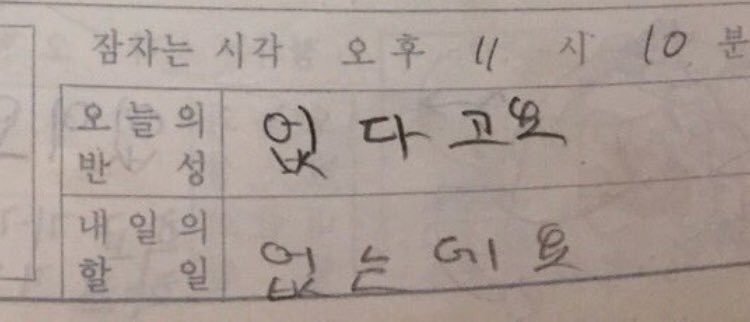 잠자는 시각 오후 11 시 10 분
오늘의 반성 없다고요
내일의 할일 없는데요